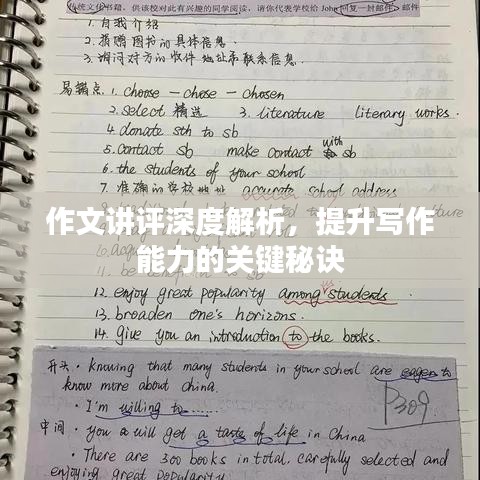 传统文化书籍，供该校对此有兴趣的同学阅读，请你代表学校给 John 回复一封邮件，邮件
1. 自我介绍
2. 捐赠图书的具体信息.
3. 询问对方的收件地址和联系信息.
易错点. 1. choose — chose — chosen
2. select 精选 3. literature literary works.
4. donate sth to sb
5. contact sb make contact with sb
6. the students of your school
7. 准确的学校地址 accurate school address
作文讲评深度解析，提升写作
能力的关键秘诀
12. enjoy great popularity among students
13. broaden one's horizons.
14. Give you an introduction to the books.
开头. • knowing that many students in your school are eager to
know more about china.
• I'm willing to ......
P309
中间 • you will get a taste of life in China
• There are 300 books in total, carefully selected and
enjoying great popularity